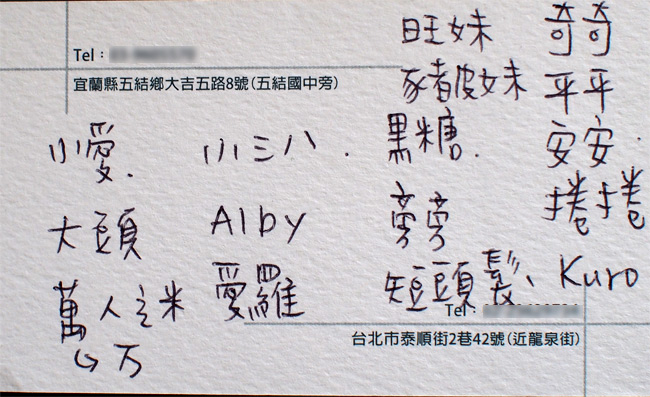 旺妹 奇奇
Tel：
豬皮妹 平平
宜蘭縣五結鄉大吉五路8號(五結國中旁)
小愛. 小三八. 黑糖. 安安.
大頭 Alby 旁旁 捲捲
萬人之米 愛羅 短頭髮、Kuro
Tel：
台北市泰順街2巷42號(近龍泉街)